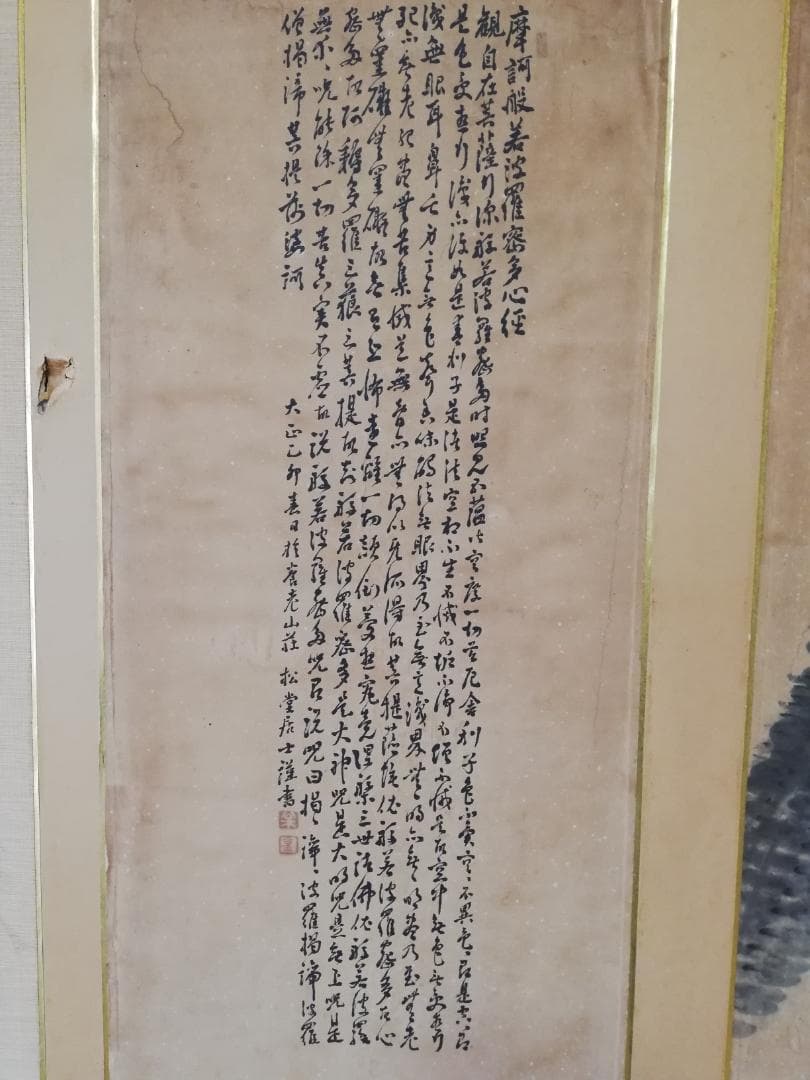 摩訶般若波羅蜜多心經
觀自在菩薩行深般若波羅蜜多時照見五蘊皆空度一切苦厄舍利子色不異空〻不異色〻即是空〻即
是色受想行識亦復如是舍利子是諸法空相不生不滅不垢不淨不增不減是故空中無色無受想行
識無眼耳鼻舌身意無色聲香味觸法無眼界乃至無意識界無〻明亦無〻明盡乃至無老
死亦無老死盡無苦集滅道無智亦無得以無所得故菩提薩埵依般若波羅蜜多故心
無罣礙無罣礙故無有恐怖遠離一切顛倒夢想究竟涅槃三世諸佛依般若波羅
蜜多故阿耨多羅三藐三菩提故知般若波羅蜜多是大神咒是大明咒是無上咒是
無等〻咒能除一切苦真実不虛故説般若波羅蜜多咒即説咒曰揭〻諦〻波羅揭諦波羅
僧揭諦菩提薩婆訶
大正乙卯春日於養老山莊 松堂居士謹書